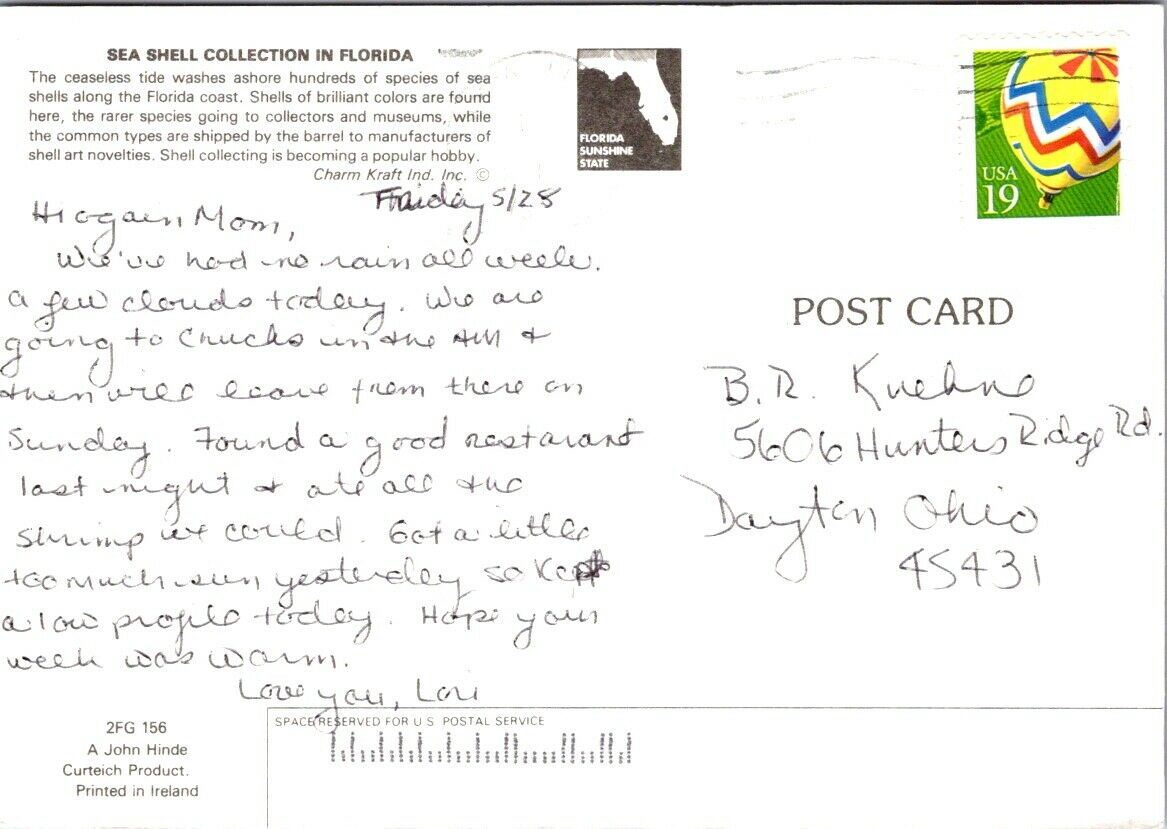 SEA SHELL COLLECTION IN FLORIDA
The ceaseless tide washes ashore hundreds of species of sea
shells along the Florida coast. Shells of brilliant colors are found
here, the rarer species going to collectors and museums, while
the common types are shipped by the barrel to manufacturers of
shell art novelties. Shell collecting is becoming a popular hobby.
Charm Kraft Ind. Inc. ©
FLORIDA
SUNSHINE
STATE
USA
19
Friday 5/28
Hi again Mom,
We've had no rain all week.
a few clouds today. We are
going to Chucks in the AM &
then will leave from there on
Sunday. Found a good restarant
last night & ate all the
shrimp we could. Got a little
too much sun yesterday so kept
a low profile today. Hope your
week was warm.
Love you, Lori
POST CARD
B.R. Kuehne
5606 Hunters Ridge Rd.
Dayton Ohio
45431
2FG 156
A John Hinde
Curteich Product.
Printed in Ireland
SPACE RESERVED FOR U.S. POSTAL SERVICE